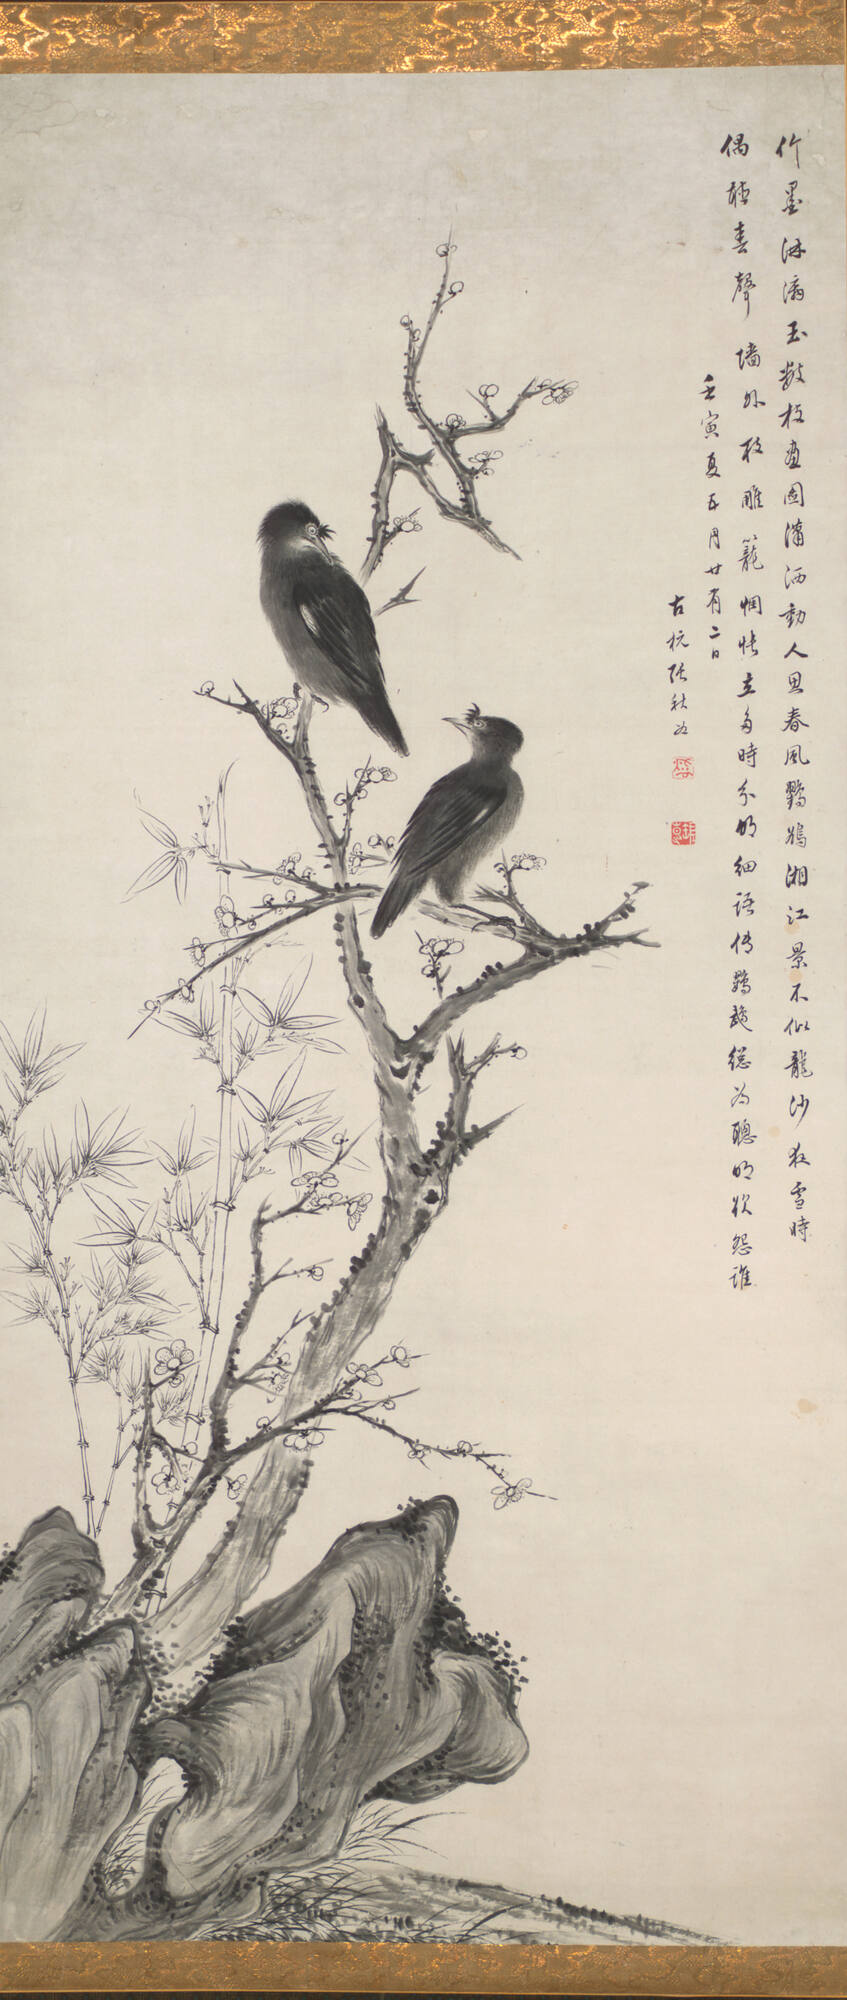 竹墨淋漓玉數枝畫圖瀟洒動人思春風鸜鵒湘江景不似龍沙夜雪時
偶聽春聲墻外枝雕籠惆悵立多時分明細語傳鸚鵡總為聰明欲怨誰
壬寅夏五月廿有二日
古杭張秋